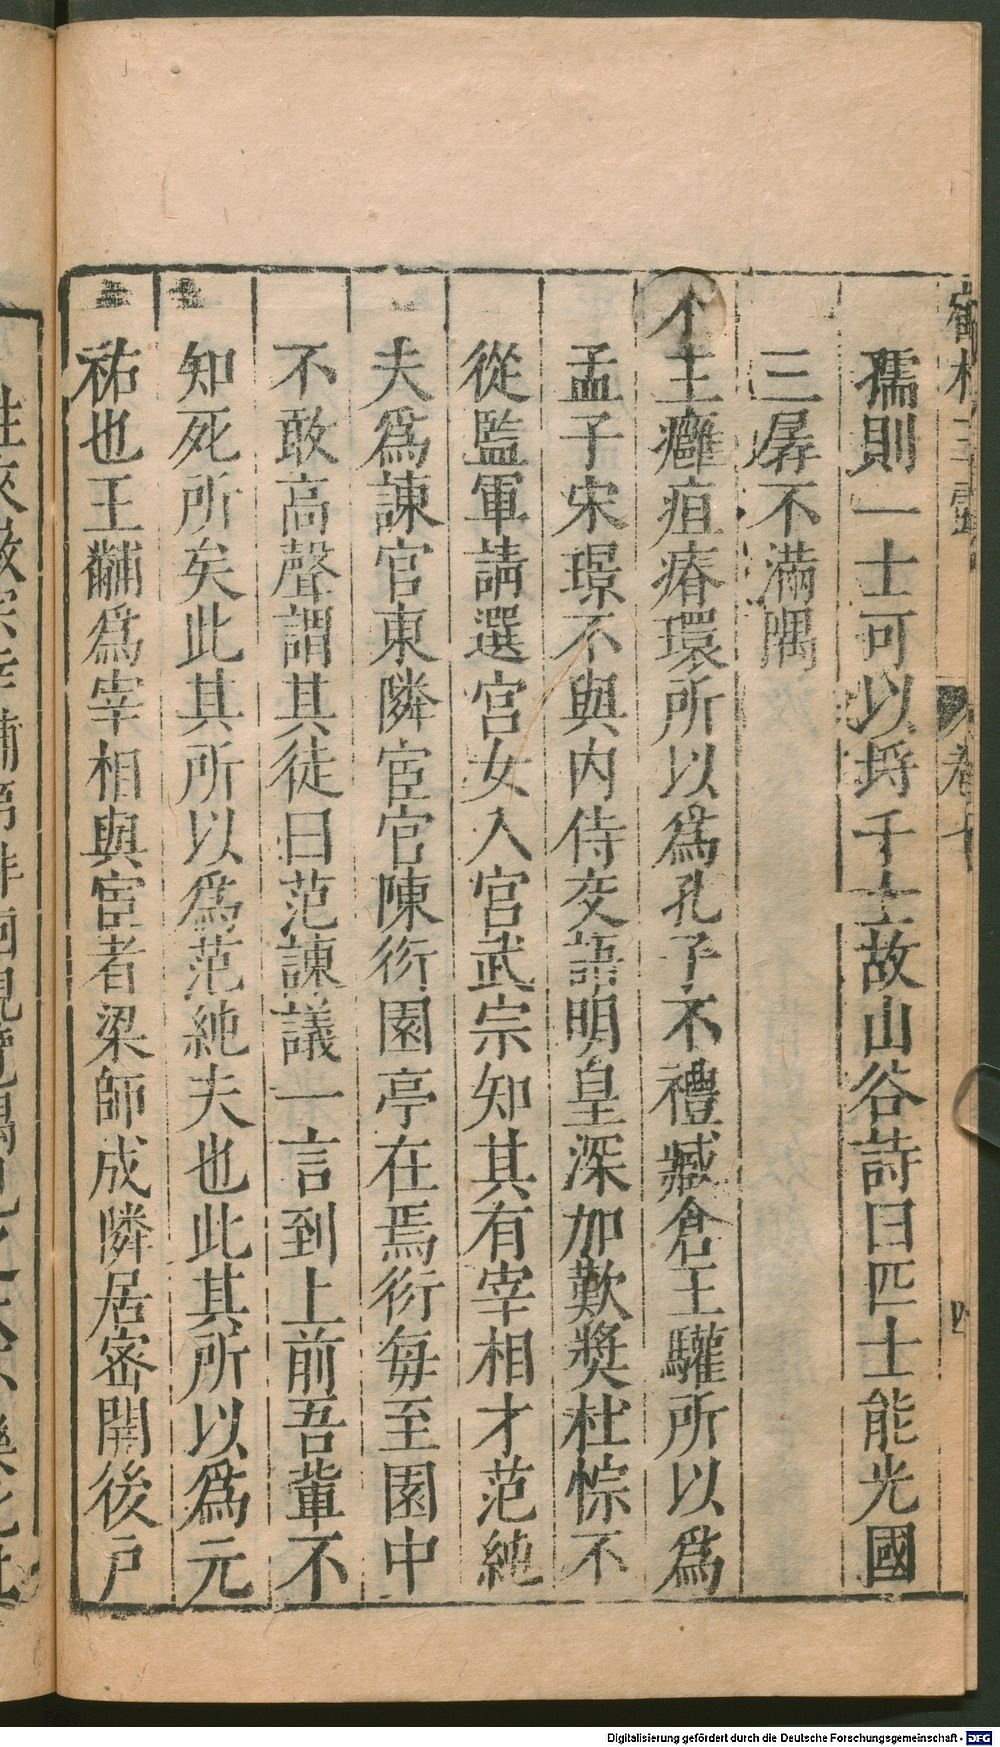 孺則一士可以埓千士故山谷詩曰匹士能光國
三孱不滿隅
不主癰疽瘠環所以為孔子不禮臧倉王驩所以爲
孟子宋璟不與内侍交語明皇深加歎獎杜悰不
從監軍請選宮女入宮武宗知其有宰相才范純
夫爲諫官東隣宦官陳衍園亭在焉衍每至園中
不敢高聲謂其徒曰范諫議一言到上前吾輩不
知死所矣此其所以爲范純夫也此其所以爲元
祐也王黼爲宰相與宦者梁師成隣居密開後戶
Digitalisierung gefördert durch die Deutsche Forschungsgemeinschaft - DFG